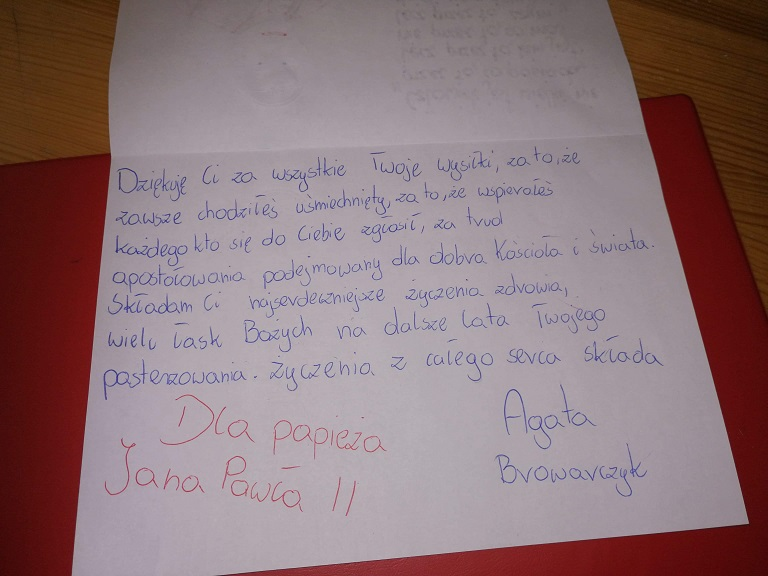 Dziękuję Ci za wszystkie Twoje wysiłki, za to, że
zawsze chodziłeś uśmiechnięty, za to, że wspierałeś
każdego kto się do Ciebie zgłosił, za trud
apostołowania podejmowany dla dobra Kościoła i świata.
Składam Ci najserdeczniejsze życzenia zdrowia,
wielu łask Bożych na dalsze lata Twojego
pasterzowania. Życzenia z całego serca składa
Agata
Browarczyk
Dla papieża
Jana Pawła II